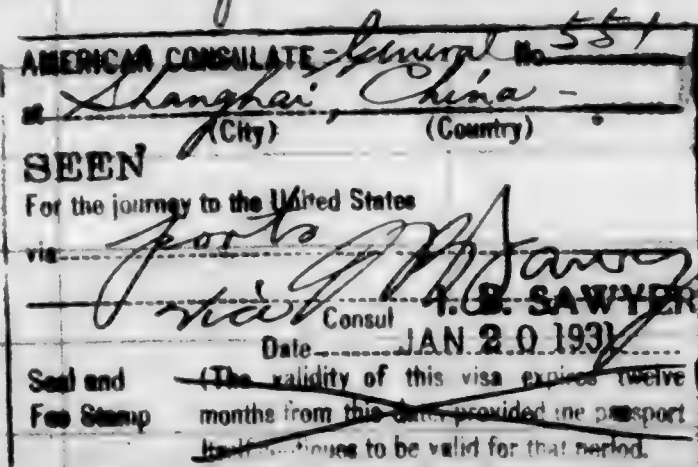 AMERICAN CONSULATE - General No. 551
at Shanghai, China -
(City) (Country)
SEEN
For the journey to the United States
via ports
via Consul J. B. SAWYER
Date JAN 20 1931
Seal and (The validity of this visa expires twelve
Fee Stamp months from this date provided the passport
itself continues to be valid for that period.